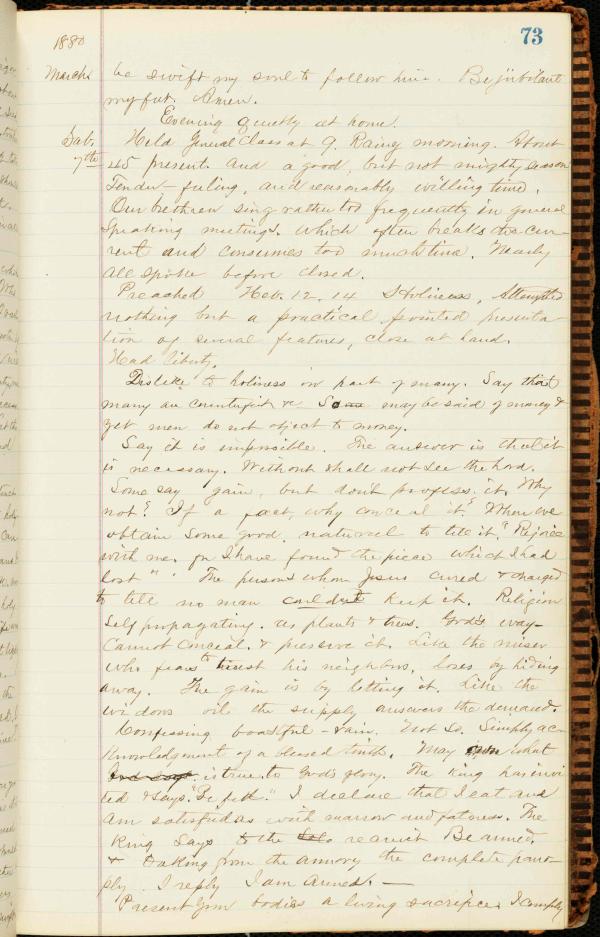 73
1880
March be swift my soul to follow him. Be jubilant
my feet. Amen.
Evening quietly at home.
Sab. Held General Class at 9. Rainy morning. About
7th 45 present. and a good, but not mighty season
Tender feeling, and reasonably willing time.
Our brethren sing rather too frequently in general
Speaking meetings. which often breaks the cur-
rent and consumes too much time. Nearly
all spoke before closed.
Preached Heb. 12.14 Holiness, Attempted
nothing but a practical pointed presenta-
tion of several features, close at hand.
Had liberty.
Dislike to holiness on part of many. Say that
many are counterfeit &c. Same may be said of money &
yet men do not object to money.
Say it is impossible. The answer is that it
is necessary. Without shall not see the Lord.
Some say gain, but don't profess it. Why
not? If a fact, why conceal it? When we
obtain some good, natural to tell it. "Rejoice
with me, for I have found the piece which I had
lost". The persons whom Jesus cured & charged
to tell no man could not keep it. Religion
Self propagating. as plants & trees. God's way—
Cannot conceal & preserve it. Like the miser
who fears to trust his neighbors, loses by hiding
away. The gain is by letting it. Like the
widows oil the supply answers the demand.
Confessing boastful & vain. Not So. Simply ac-
knowledgement of a blessed truth. May own what
is true to God's glory. The King has invi
ted & says "Be filled." I declare that I eat and
am satisfied as with marrow and fatness. The
King says to the recruit Be armed,
& taking from the armory the complete pano-
ply. I reply I am armed. —
Present your bodies a living sacrifice. I comply